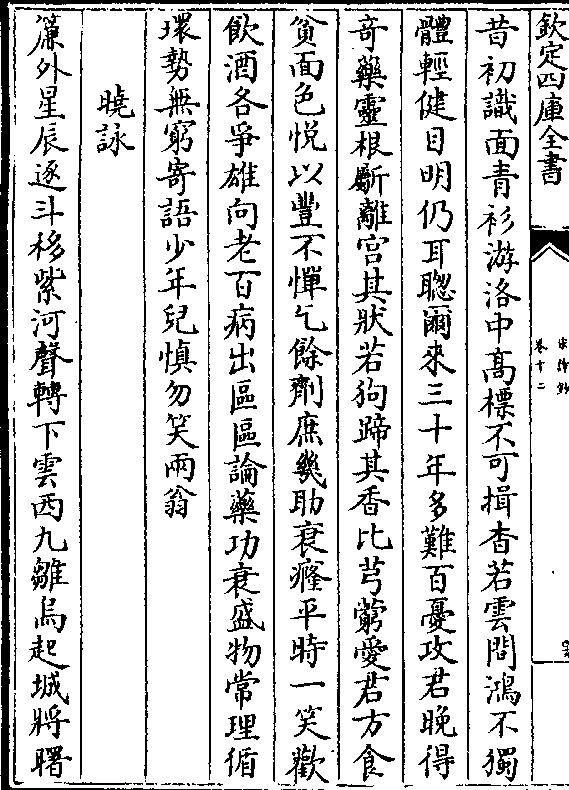 欽定四庫全書
宋詩鈔
卷十二
昔初識面青衫游洛中髙標不可揖杳若雲間鴻不獨
體輕健目明仍耳聰爾來三十年多難百憂攻君晚得
奇藥靈根斸離宫其狀若狗蹄其香比芎藭愛君方食
貧面色悦以豐不憚乞餘劑庶幾助衰癃平時一笑歡
飲酒各爭雄向老百病出區區論藥功衰盛物常理循
環勢無窮寄語少年兒慎勿笑兩翁
曉詠
簾外星辰逐斗移紫河聲轉下雲西九雛烏起城將曙